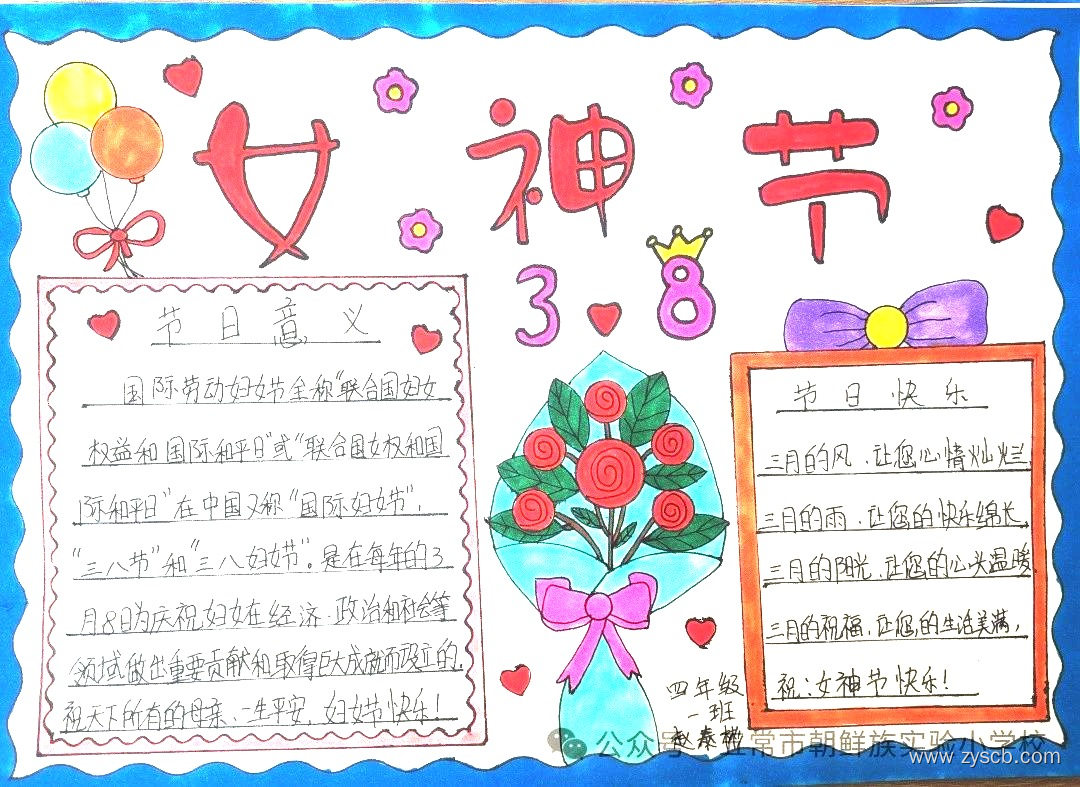 女神节
3 8
节日意义
国际劳动妇女节全称“联合国妇女
权益和国际和平日”或“联合国女权和国
际和平日”在中国又称“国际妇女节”,
“三八节”和“三八妇女节”。是在每年的3
月8日为庆祝妇女在经济.政治和社会等
领域做出重要贡献和取得巨大成就而设立的.
祝天下所有的母亲,一生平安,妇女节快乐!
节日快乐
三月的风,让您心情灿烂.
三月的雨,让您的快乐绵长,
三月的阳光,让您的心头温暖.
三月的祝福,让您的生活美满,
祝:女神节快乐!
四年级
一班
赵泰
公众号 常市朝鲜族实验小学校
www.zyscb.com